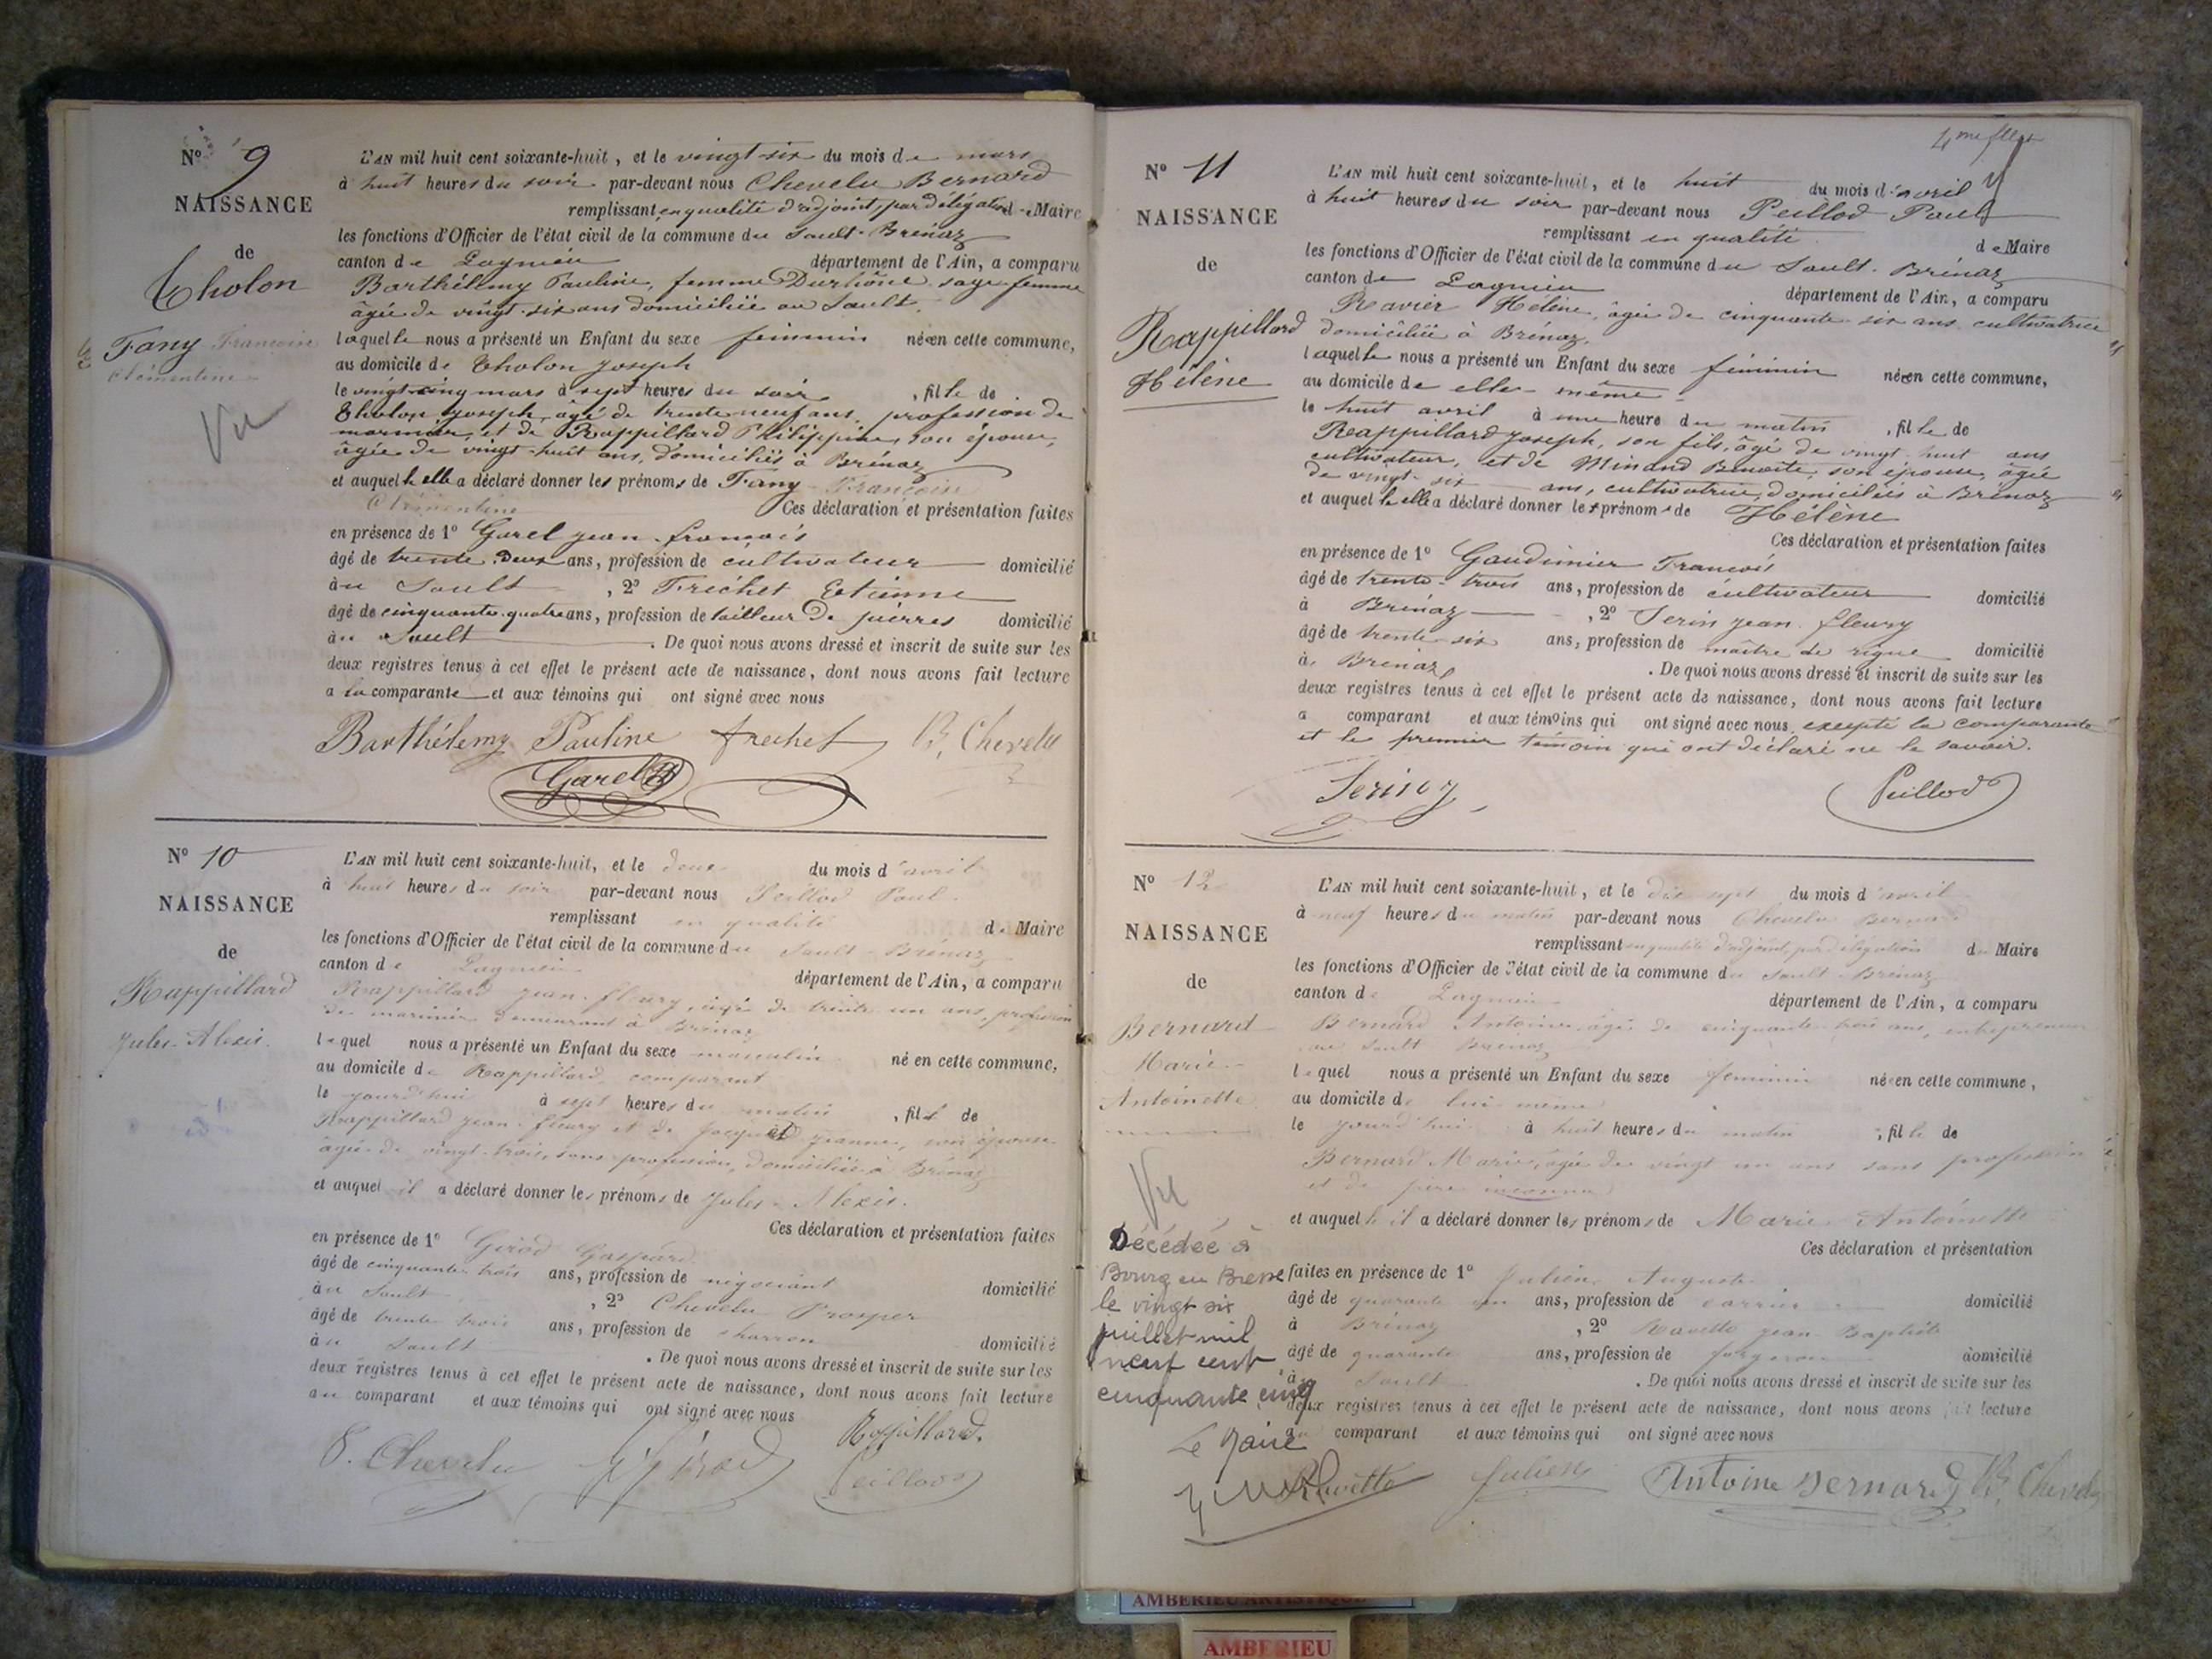 N° 9
NAISSANCE
de
Tholon
Fany Françoise
Clémentine
Vu
L'AN mil huit cent soixante-huit, et le vingt-six du mois de mars
à huit heures du soir par-devant nous Chevelu Bernard
remplissant en qualité d'adjoint, par délégation de Maire
les fonctions d'Officier de l'état civil de la commune du Sault-Brénaz
canton de Lagnieu département de l'Ain, a comparu
Barthélemy Pauline, femme Durhône sage-femme
âgée de vingt-six ans domiciliée au Sault,
laquelle nous a présenté un Enfant du sexe féminin née en cette commune,
au domicile de Tholon Joseph
le vingt-cinq mars à sept heures du soir, fille de
Tholon Joseph, âgé de trente neuf ans, profession de
marinier, et de Rappillard Philippine, son épouse,
âgée de vingt-huit ans, domiciliés à Brénaz
et auquel elle a déclaré donner les prénoms de Fany Françoise
Clémentine Ces déclaration et présentation faites
en présence de 1° Garel jean-françois
âgé de trente deux ans, profession de cultivateur domicilié
au Sault, 2° Fréchet Etienne
âgé de cinquante-quatre ans, profession de tailleur de pierres domicilié
au Sault. De quoi nous avons dressé et inscrit de suite sur les
deux registres tenus à cet effet le présent acte de naissance, dont nous avons fait lecture
a la comparante et aux témoins qui ont signé avec nous
Barthélemy Pauline frechet B. Chevelu
Garel
N° 10
NAISSANCE
de
Rappillard
Jules-Alexis.
L'AN mil huit cent soixante-huit, et le douze du mois d'avril
à huit heures du soir par-devant nous Peillod Paul
remplissant en qualité de Maire
les fonctions d'Officier de l'état civil de la commune du Sault-Brénaz
canton de Lagnieu département de l'Ain, a comparu
Rappillard jean-fleury, âgé de trente un ans, profession
de marinier demeurant à Brénaz
lequel nous a présenté un Enfant du sexe masculin né en cette commune,
au domicile de Rappillard comparant
le jourd'hui à sept heures du matin, fils de
Rappillard jean-fleury et de Jacquet jeanne, son épouse
âgée de vingt-trois, sans profession, domiciliée à Brénaz
et auquel il a déclaré donner les prénoms de Jules-Alexis.
Ces déclaration et présentation faites
en présence de 1° Girod Gaspard
âgé de cinquante-trois ans, profession de négociant domicilié
au Sault, 2° Chevelu Prosper
âgé de trente trois ans, profession de charron domicilié
au Sault. De quoi nous avons dressé et inscrit de suite sur les
deux registres tenus à cet effet le présent acte de naissance, dont nous avons fait lecture
au comparant et aux témoins qui ont signé avec nous
Rappillard.
P. Chevelu Girod Peillod
4me flles
N° 11
NAISSANCE
de
Rappillard
Hélène
L'AN mil huit cent soixante-huit, et le huit du mois d'avril
à huit heures du soir par-devant nous Peillod Paul
remplissant en qualité de Maire
les fonctions d'Officier de l'état civil de la commune du Sault-Brénaz
canton de Lagnieu département de l'Ain, a comparu
Ravier Hélène, âgée de cinquante-six ans cultivatrice
domiciliée à Brénaz,
laquelle nous a présenté un Enfant du sexe féminin née en cette commune,
au domicile de elle-même
le huit avril à une heure du matin, fille de
Rappillard Joseph, son fils, âgé de vingt-huit ans
cultivateur, et de Minand Benoîte, son épouse, âgée
de vingt-six ans, cultivatrice, domiciliés à Brénaz
et auquel elle a déclaré donner le prénom de Hélène
Ces déclaration et présentation faites
en présence de 1° Gaudimier François
âgé de trente-trois ans, profession de cultivateur domicilié
à Brénaz, 2° Serin jean-fleury
âgé de trente-six ans, profession de maître de rigue domicilié
à Brénaz. De quoi nous avons dressé et inscrit de suite sur les
deux registres tenus à cet effet le présent acte de naissance, dont nous avons fait lecture
a comparant et aux témoins qui ont signé avec nous, excepté la comparante
et le premier témoin qui ont déclaré ne le savoir.
Serin Peillod
N° 12
NAISSANCE
de
Bernard
Marie-
Antoinette
Vu
Décédée à
Bourg en Bresse
le vingt six
juillet mil
neuf cent
cinquante cinq
Le Maire
L'AN mil huit cent soixante-huit, et le dix sept du mois d'avril
à neuf heures du matin par-devant nous Chevelu Bernard
remplissant en qualité d'adjoint, par délégation du Maire
les fonctions d'Officier de l'état civil de la commune du Sault-Brénaz
canton de Lagnieu département de l'Ain, a comparu
Bernard Antoine âgé de cinquante-trois ans, entrepreneur
au Sault Brénaz
lequel nous a présenté un Enfant du sexe féminin née en cette commune,
au domicile de lui même
le jourd'hui à huit heures du matin; fille de
Bernard Marie, âgée de vingt un ans sans profession
et de père inconnu
et auquel il a déclaré donner les prénoms de Marie Antoinette
Ces déclaration et présentation
faites en présence de 1° Julien Auguste
âgé de quarante un ans, profession de carrier domicilié
à Brénaz, 2° Ravette jean-Baptiste
âgé de quarante ans, profession de forgeron domicilié
à Sault. De quoi nous avons dressé et inscrit de suite sur les
deux registres tenus à cet effet le présent acte de naissance, dont nous avons fait lecture
au comparant et aux témoins qui ont signé avec nous
Ravette Julien Antoine Bernard B. Chevelu
AMBERIEU ARTISTIQUE
AMBERIEU